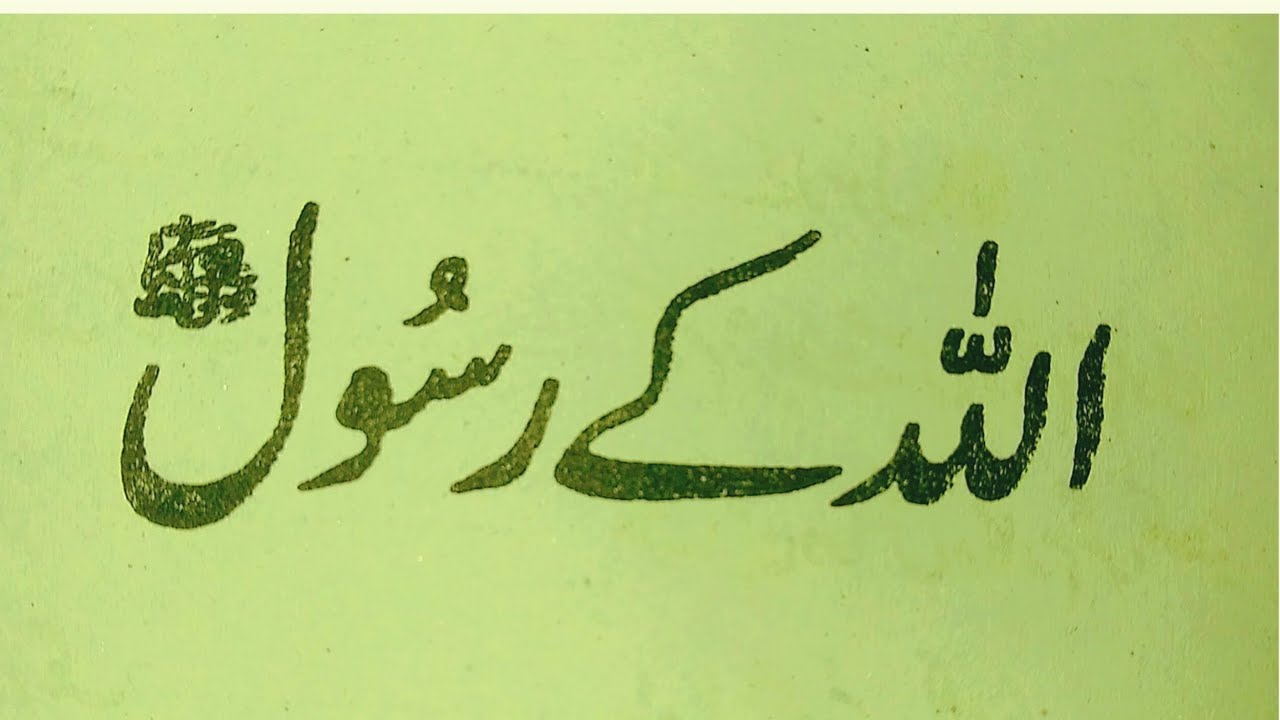 اللہ کے رسُول ﷺ